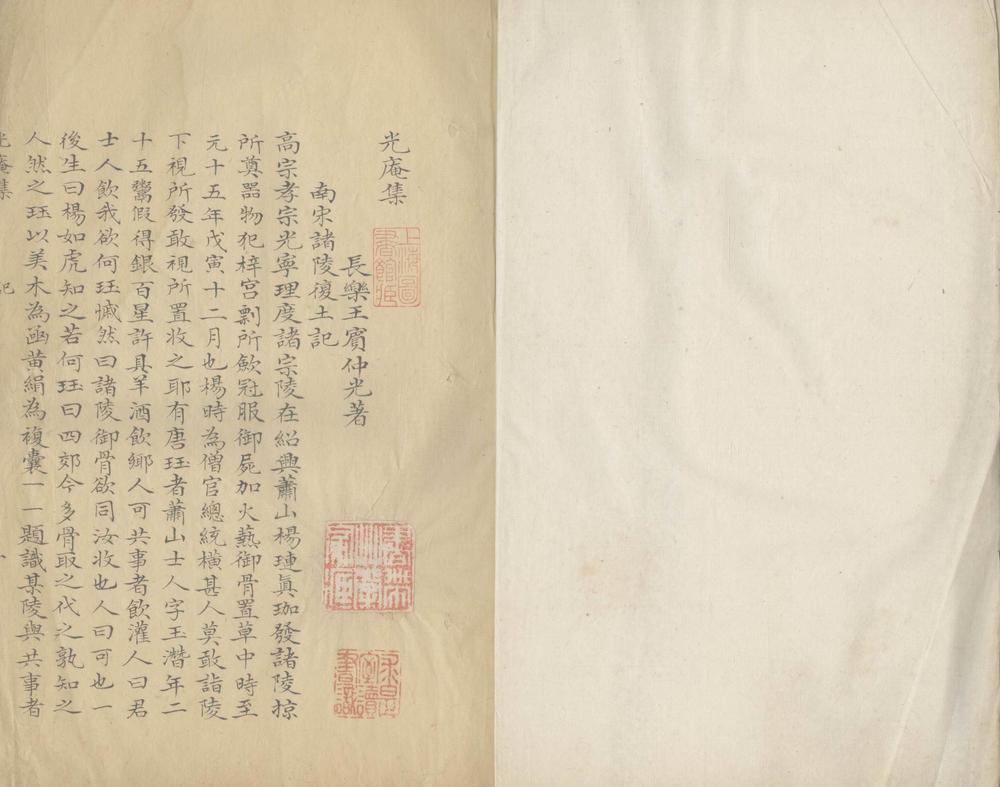 光庵集
長樂王賓仲光著
南宋諸陵復土記
高宗孝宗光寧理度諸宗陵在紹興蕭山楊璉眞珈發諸陵掠
所奠器物犯梓宮剽所歛冠服御屍加火爇御骨置草中時至
元十五年戊寅十二月也楊時為僧官總統橫甚人莫敢詣陵
下視所發敢視所置收之耶有唐珏者蕭山士人字玉潛年二
十五鬻假得銀百星許具羊酒飲鄉人可共事者飲灌人曰君
士人飲我欲何珏慽然曰諸陵御骨欲同汝收也人曰可也一
後生曰楊如虎知之若何珏曰四郊今多骨取之代之孰知之
人然之珏以美木為函黃絹為複囊一一題識某陵與共事者
光庵集 記
上海圖書館藏